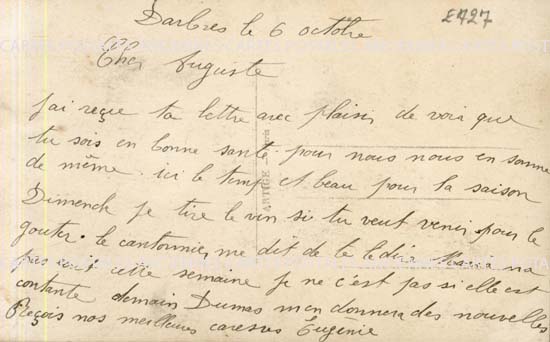 Darbres le 6 octobre
E427
Cher Auguste
j'ai reçue ta lettre avec plaisir de voir que
tu sois en bonne santé pour nous nous en somme
de même. ici le temp et beau pour la saison
Dimenche je tire le vin si tu veut venir pour le
gouter. le cantonnier me dit de te le dire ma
pas écrit cette semaine je ne c'est pas si elle est
contante demain Dumas m'en donnera des nouvelles
Reçois nos meilleures caresses Eugénie